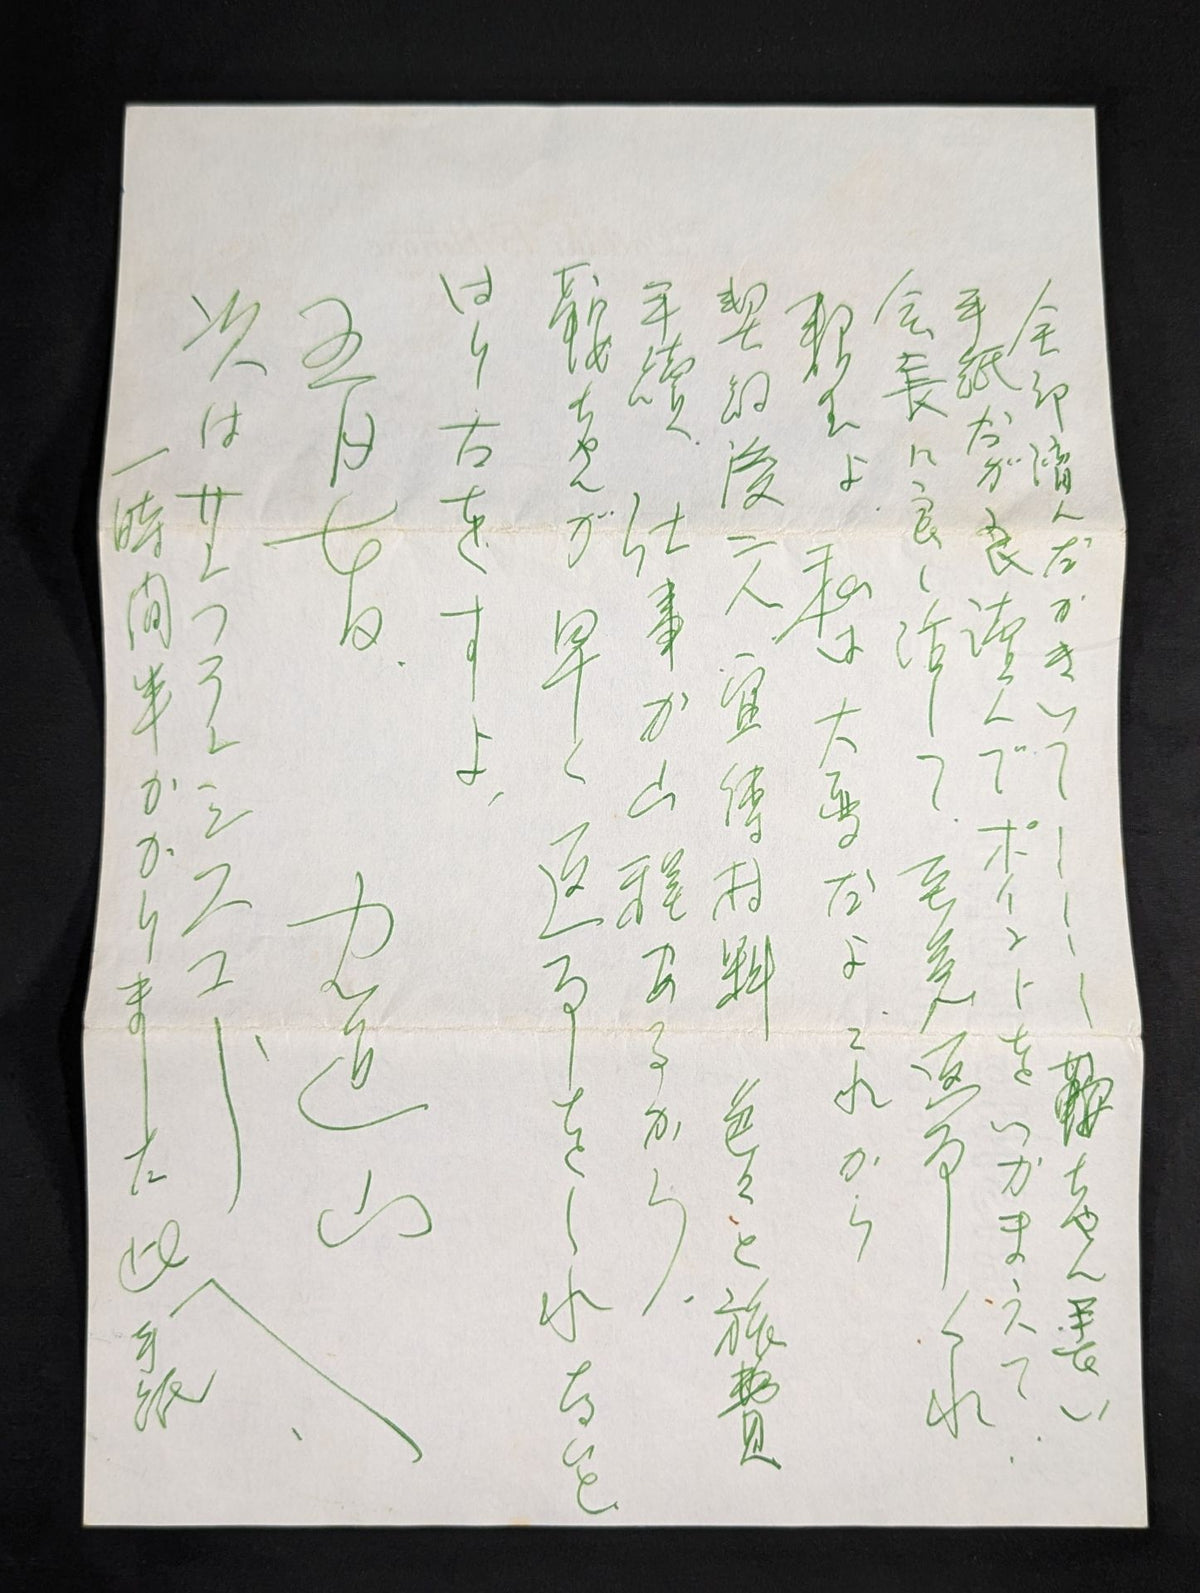 全部済んだかきいてーーーー 鞍ちゃん長い
手紙だが良読んでポイントをつかまえて、
会長に良く話して、至急返事くれ
頼むよ 私は大変だよ、これから
契約後二人宣伝材料 色々と旅費
手続、仕事が山程あるから、
鞍ちゃんが早く返事をくれないと
はり古をすよ、
五月七日、 力道山
次はサンフランシスコじ
一時間半かかりました此手紙